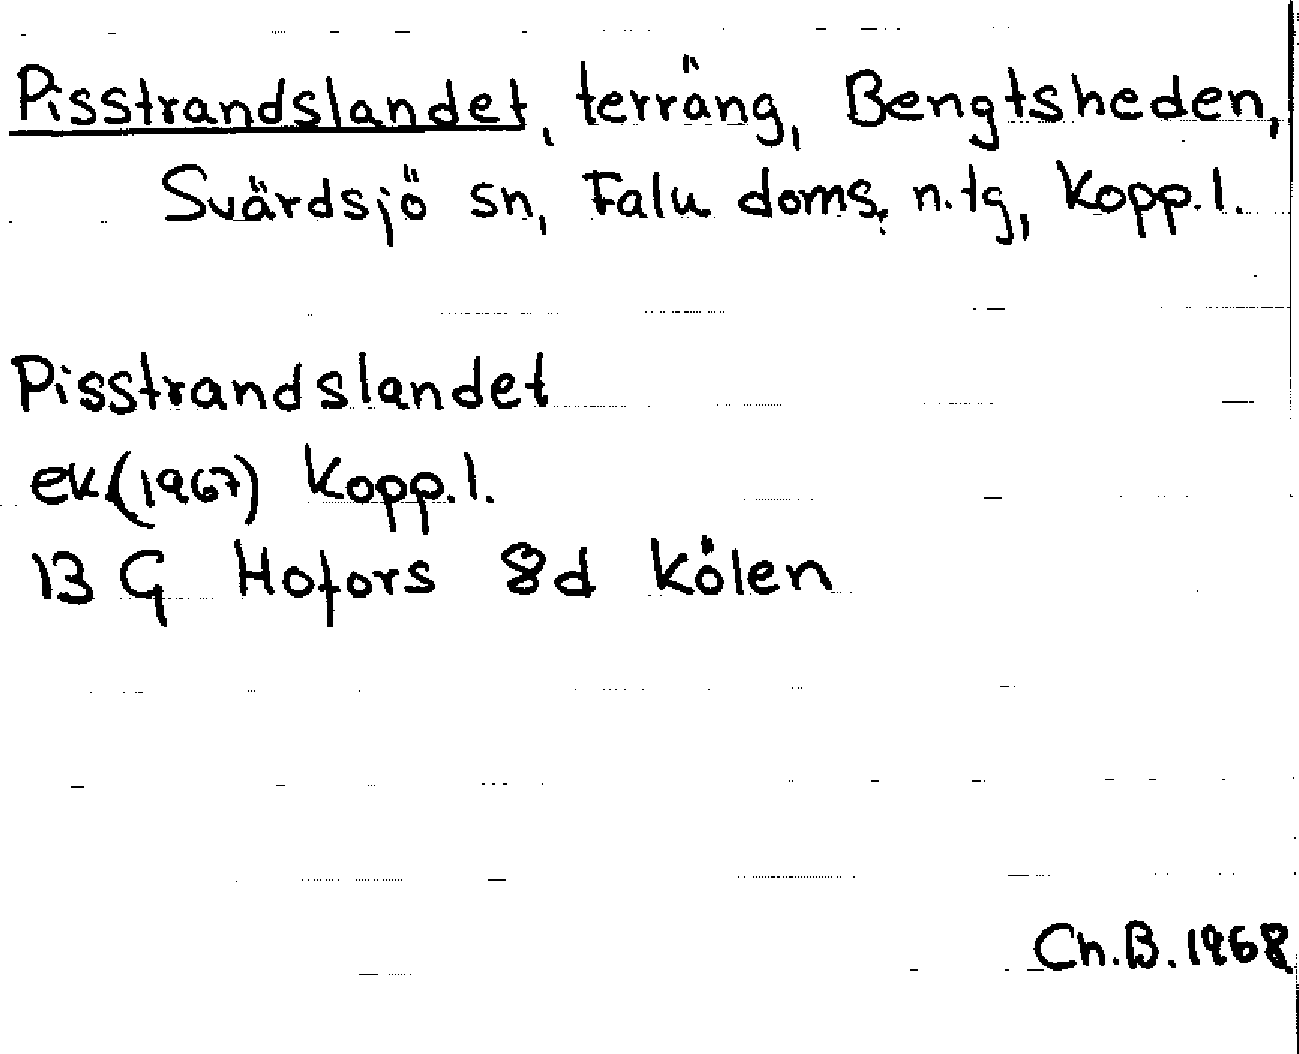 Pisstrandslandet, terräng, Bengtsheden,
Svärdsjö sn, Falu doms. n. tg, Kopp. l.
Pisstrandslandet
ek (1967) Kopp. l.
13 G Hofors 8d Kölen
Ch. B. 1968